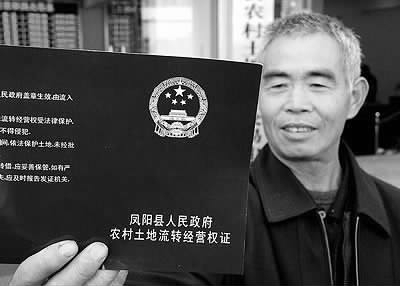 农村土
民政府盖章生效,由流入
流转经营权受法律保护,
不得侵犯.
用,依法保护土地,未经批
转借.应妥善保管.如有严
失.应及时报告发证机关.
凤阳县人民政府
农村土地流转经营权证